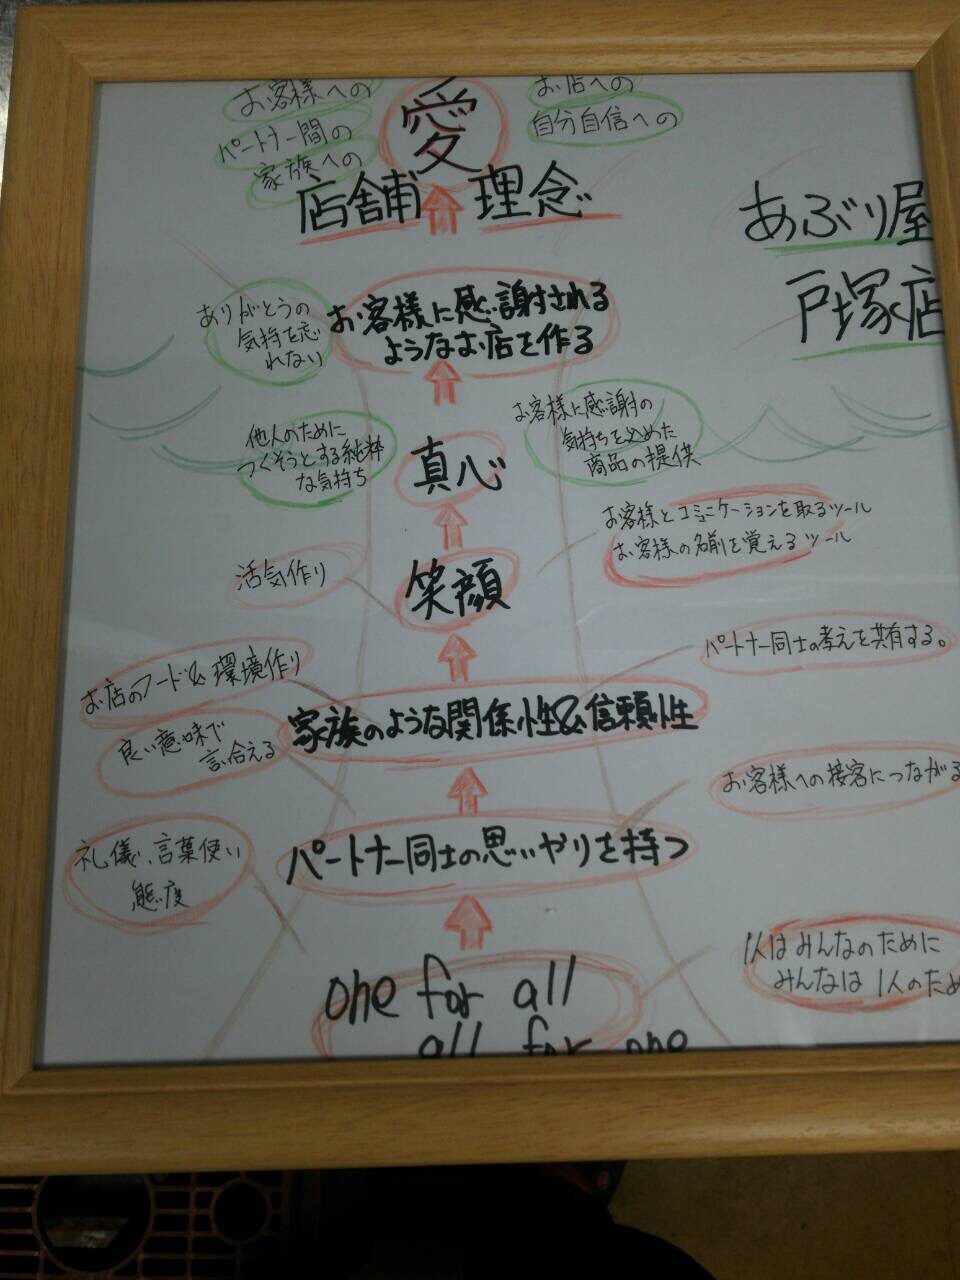 お客様への
パートナー間の
家族への
愛
お店への
自分自信への
店舗 理念
あぶり屋
戸塚店
ありがとうの
気持を忘
れない
お客様に感謝される
ようなお店を作る
他人のために
つくそうとする純粋
な気持ち
真心
お客様に感謝の
気持ちを込めた
商品の提供
お客様とコミュニケーションを取るツール
お客様の名前を覚えるツール
活気作り
笑顔
パートナー同士の考えを共有する。
お店のフード&環境作り
家族のような関係性&信頼性
良い意味で
言合える
お客様への接客につながる
パートナー同士の思いやりを持つ
礼儀、言葉使い
態度
1人はみんなのために
みんなは1人のため
one for all
all for one